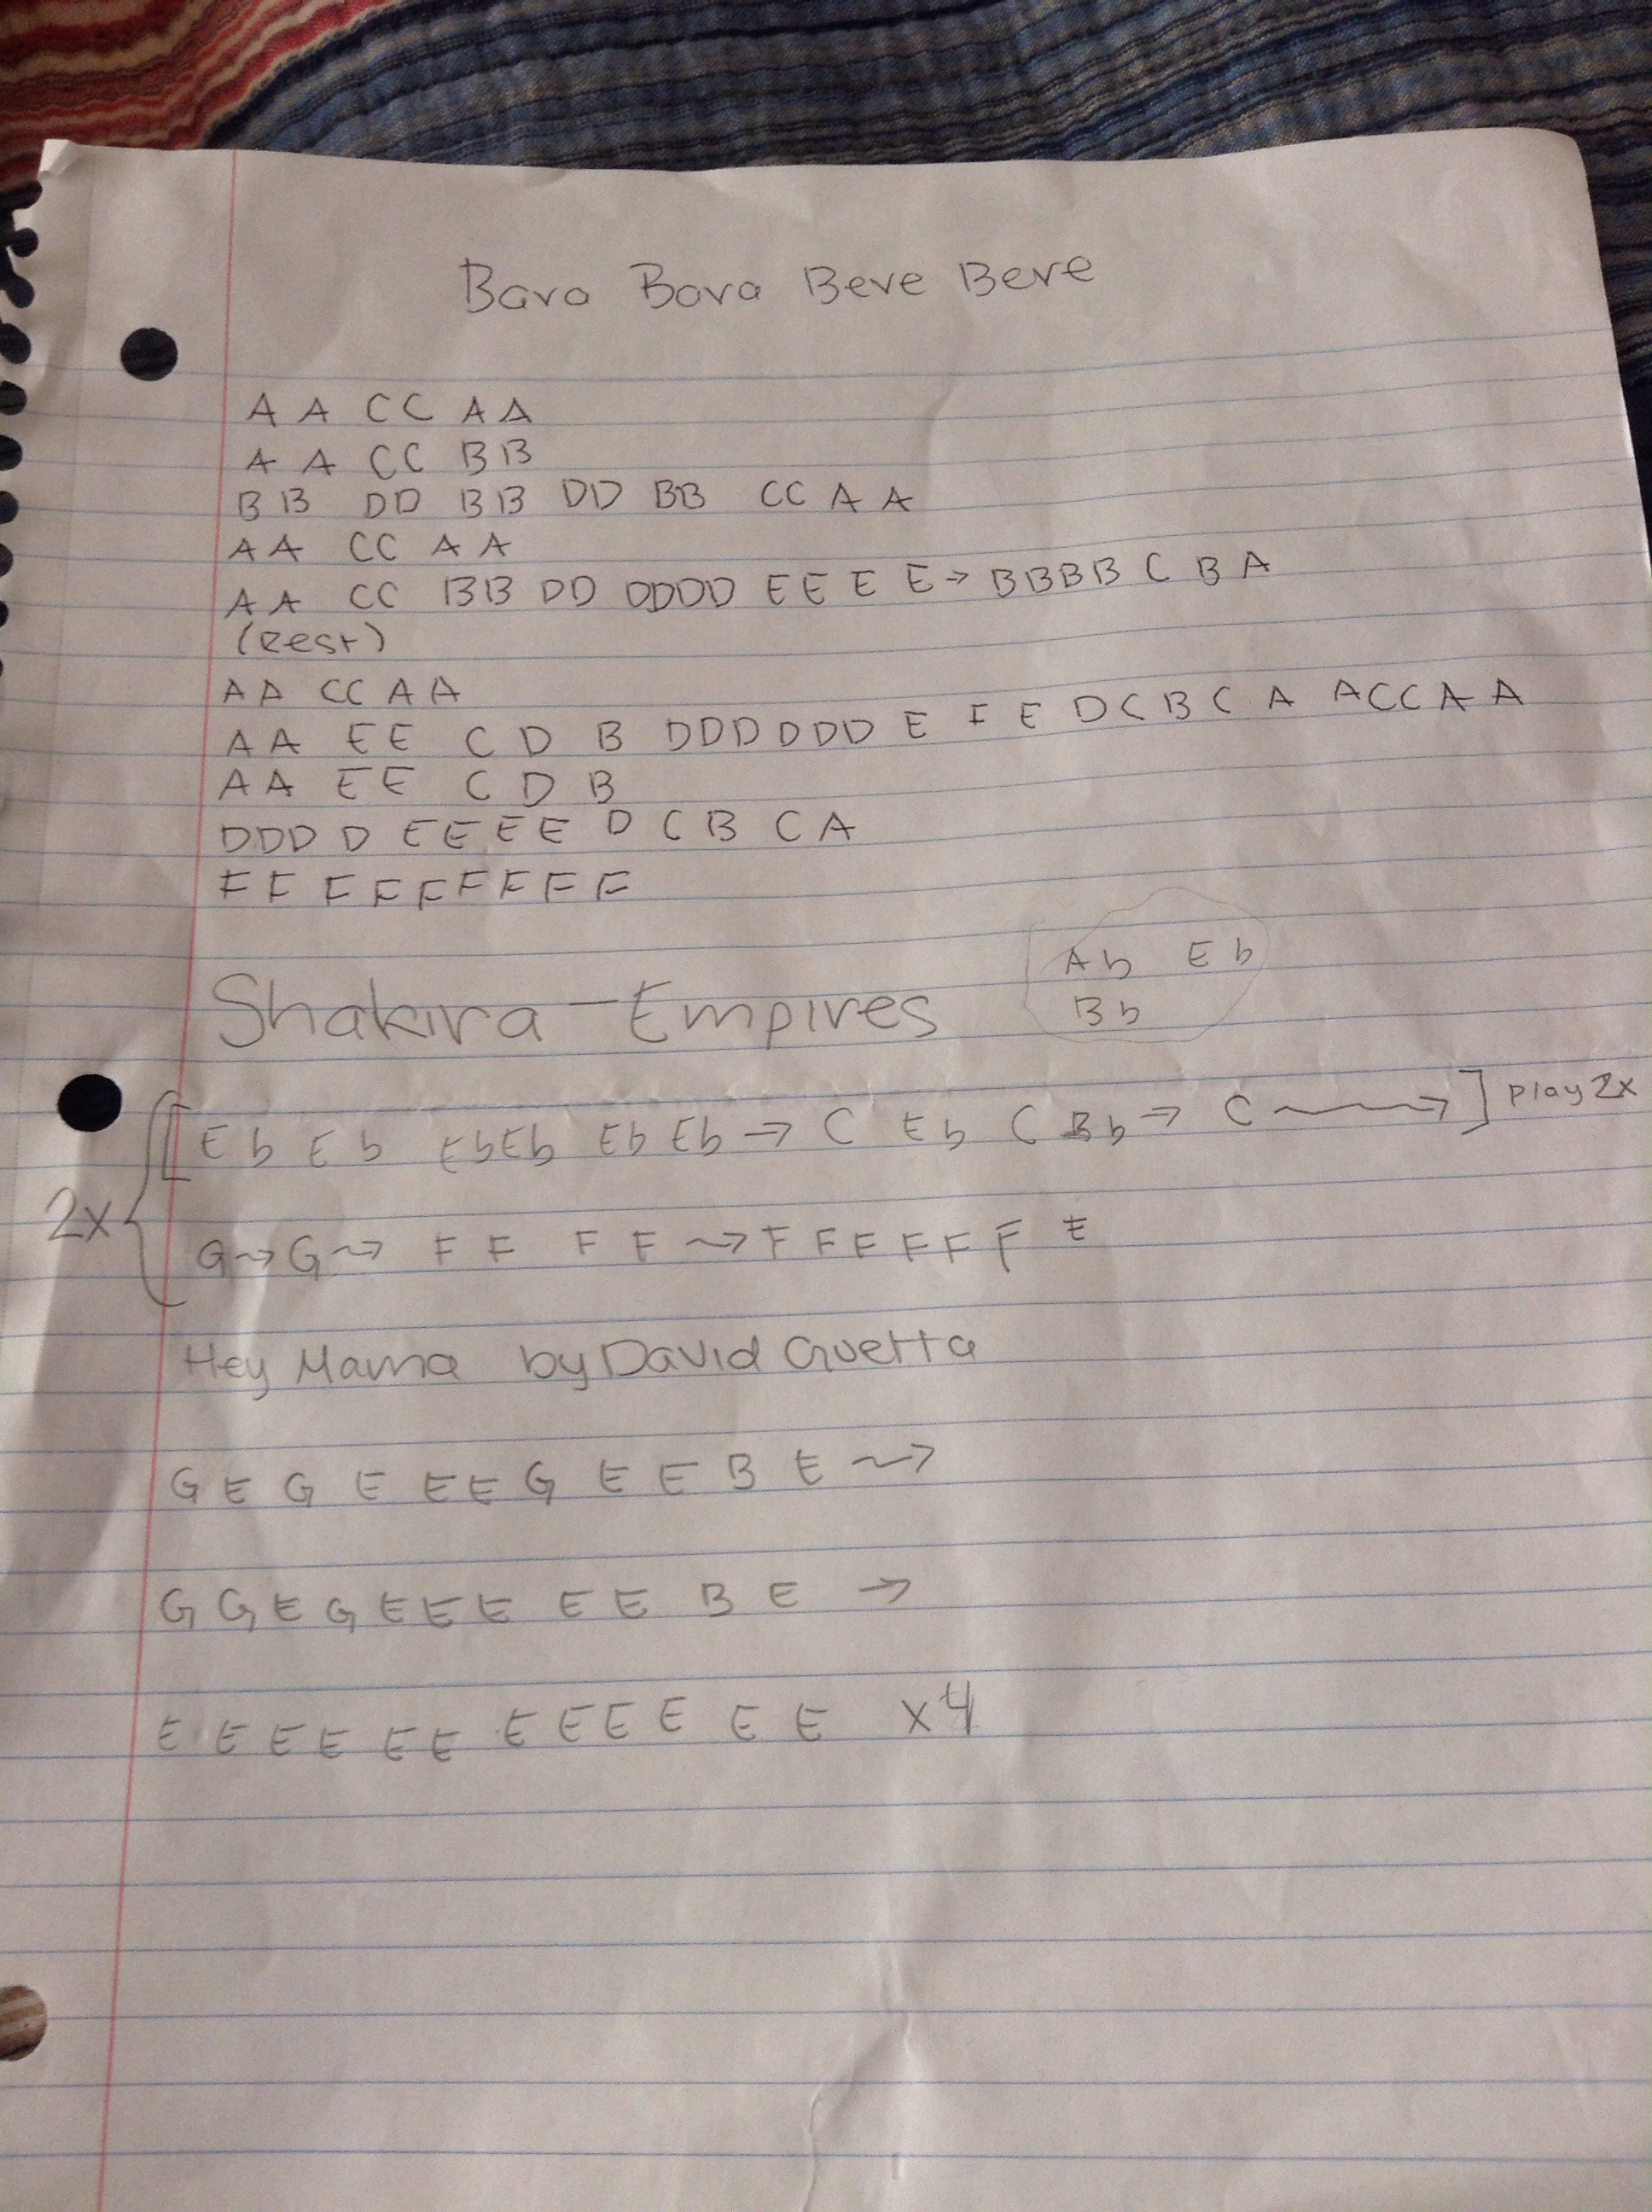 Bara Bara Bere Bere
A A CC A A
A A CC BB
BB DD BB DD BB CC A A
A A CC A A
A A CC BB DD DDDD EE E E → BBBB C B A
(Rest)
AA CC AA
AA EE C D B DDDDDD E F E D C B C A A C C A A
AA EE C D B
DDD D E E E E D C B C A
F F F F F F F F F
Ab Eb
Shakira - Empires
Bb
[ Eb Eb EbEb Eb Eb → C Eb C Bb → C → ] play 2x
2x {
G → G → F F F F → F F F F F F E
Hey Mama by David Guetta
G E G E E E G E E B E →
G G E G E E E E E B E →
E E E E E E E E E E E E x4